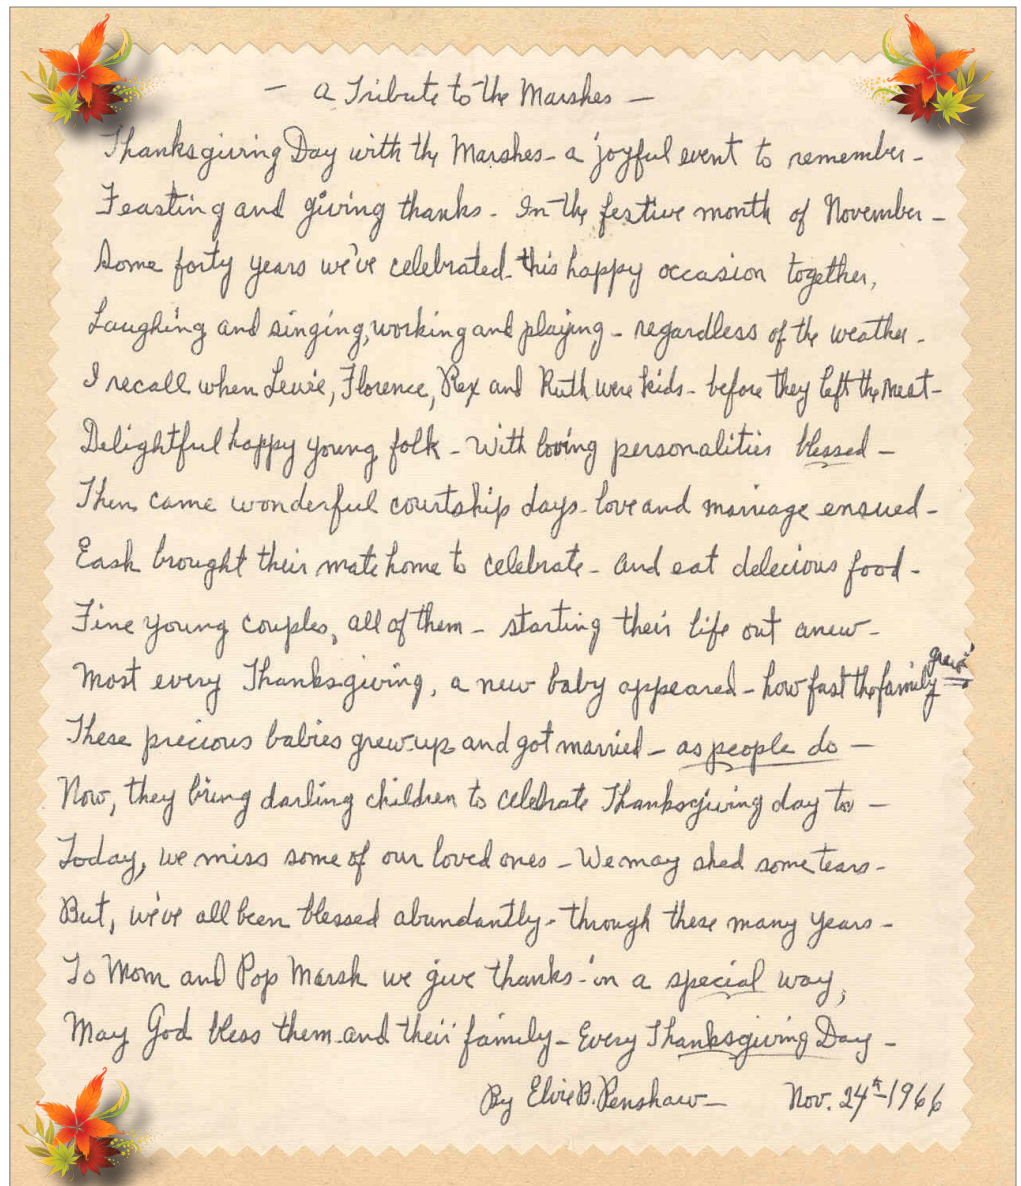 — A Tribute to the Marshes —
Thanksgiving Day with the Marshes - a joyful event to remember -
Feasting and giving thanks - In the festive month of November -
Some forty years we've celebrated - this happy occasion together,
Laughing and singing, working and playing - regardless of the weather -
I recall when Lewie, Florence, Rex and Ruth were kids - before they left the nest -
Delightful happy young folk - With loving personalities blessed -
Then came wonderful courtship days - love and marriage ensued -
Each brought their mate home to celebrate - and eat delecious food -
Fine young couples, all of them - starting their life out anew -
Most every Thanksgiving, a new baby appeared - how fast the family grew -
These precious babies grew up and got married - as people do -
Now, they bring darling children to celebrate Thanksgiving day too -
Today, we miss some of our loved ones - We may shed some tears -
But, we've all been blessed abundantly - through these many years -
To Mom and Pop Marsh we give thanks - in a special way,
May God bless them and their family - Every Thanksgiving Day -
By Elvie B. Renshaw - Nov. 24th - 1966